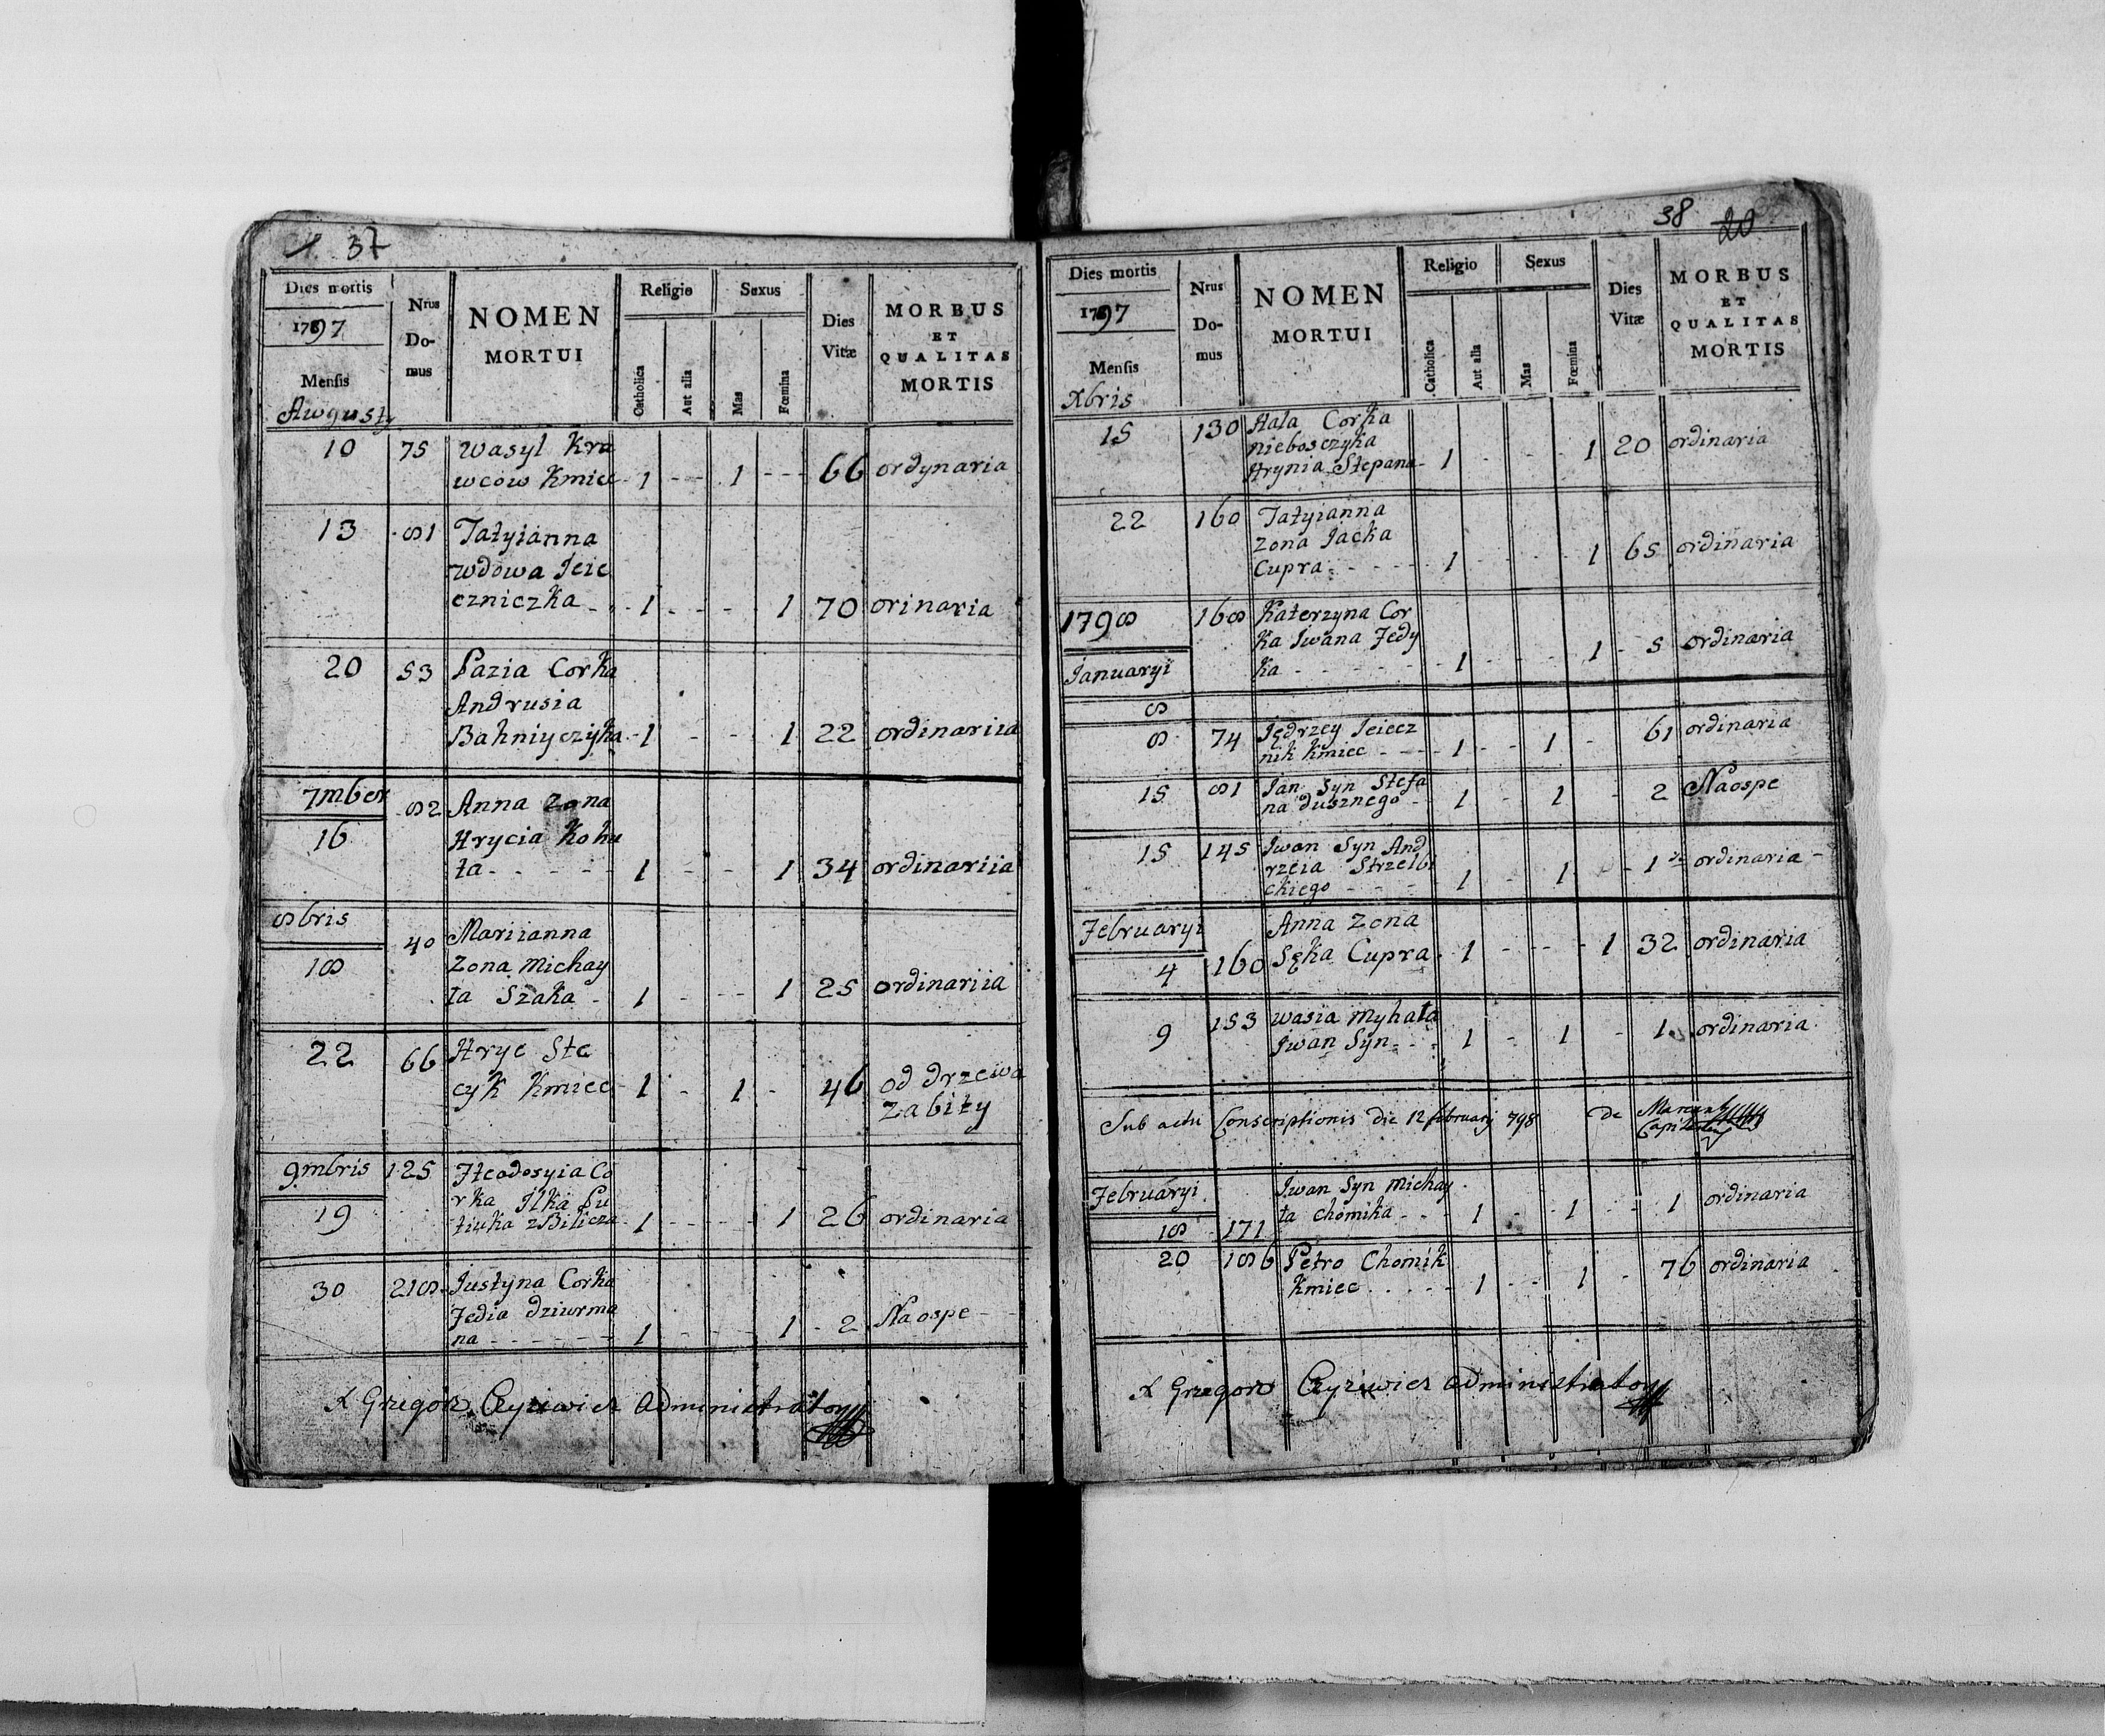 37
Dies mortis
1797
Mensis
Awgusty
Nrus
Do-
mus
NOMEN
MORTUI
Religio
Catholica
Aut alia
Sexus
Mas
Fœmina
Dies
Vitæ
MORBUS
ET
QUALITAS
MORTIS
10 75 Wasyl Kra
wcow Kmiec 1 1 66 ordynaria
13 81 Tatyianna
wdowa Jeie
czniczka 1 1 70 orinaria
20 53 Pazia Corka
Andrusia
Bahniyczyka 1 1 22 ordinariia
7mber
16 82 Anna Zona
Hrycia Kohu
ta 1 1 34 ordinariia
8bris
18 40 Mariianna
Zona Michay
ła Szaka 1 1 25 ordinariia
22 66 Hryc Ste
cyk Kmiec 1 1 46 od drzewa
zabity
9mbris 125 Fteodosyia Co
rka Ilka Pu
19 tiuka z Bilicza 1 1 26 ordinaria
30 218 Justyna Corka
Fedia dziurma
na 1 1 2 Na ospe
X Grzegorz Administrator
38 20
Dies mortis
1797
Mensis
Xbris
Nrus
Do-
mus
NOMEN
MORTUI
Religio
Catholica
Aut alia
Sexus
Mas
Fœmina
Dies
Vitæ
MORBUS
ET
QUALITAS
MORTIS
15 130 Hala Corka
nieboszczyka
Hrynia Stepana 1 1 20 ordinaria
22 160 Tatyianna
Zona Jacka
Cupra 1 1 65 ordinaria
1798 168 Katerzyna Cor
ka Iwana Fedy
Januaryi ka 1 1 5 ordinaria
8
8 74 Jędrzey Jeiecz
nik Kmiec 1 1 61 ordinaria
15 81 Jan Syn Stefa
na dusznego 1 1 2 Na ospe
15 145 Iwan Syn And
rzeia Strzelbi
ckiego 1 1 1 ordinaria
Februaryi Anna Zona
4 160 Sęka Cupra 1 1 32 ordinaria
9 153 Wasia Myhała
Iwan Syn 1 1 1 ordinaria
Sub actu Conscriptionis die 12 february 798 de
Februaryi Iwan Syn Michay
18 171 ła Chomika 1 1 1 ordinaria
20 186 Petro Chomik
Kmiec 1 1 76 ordinaria
X Grzegorz Administrator